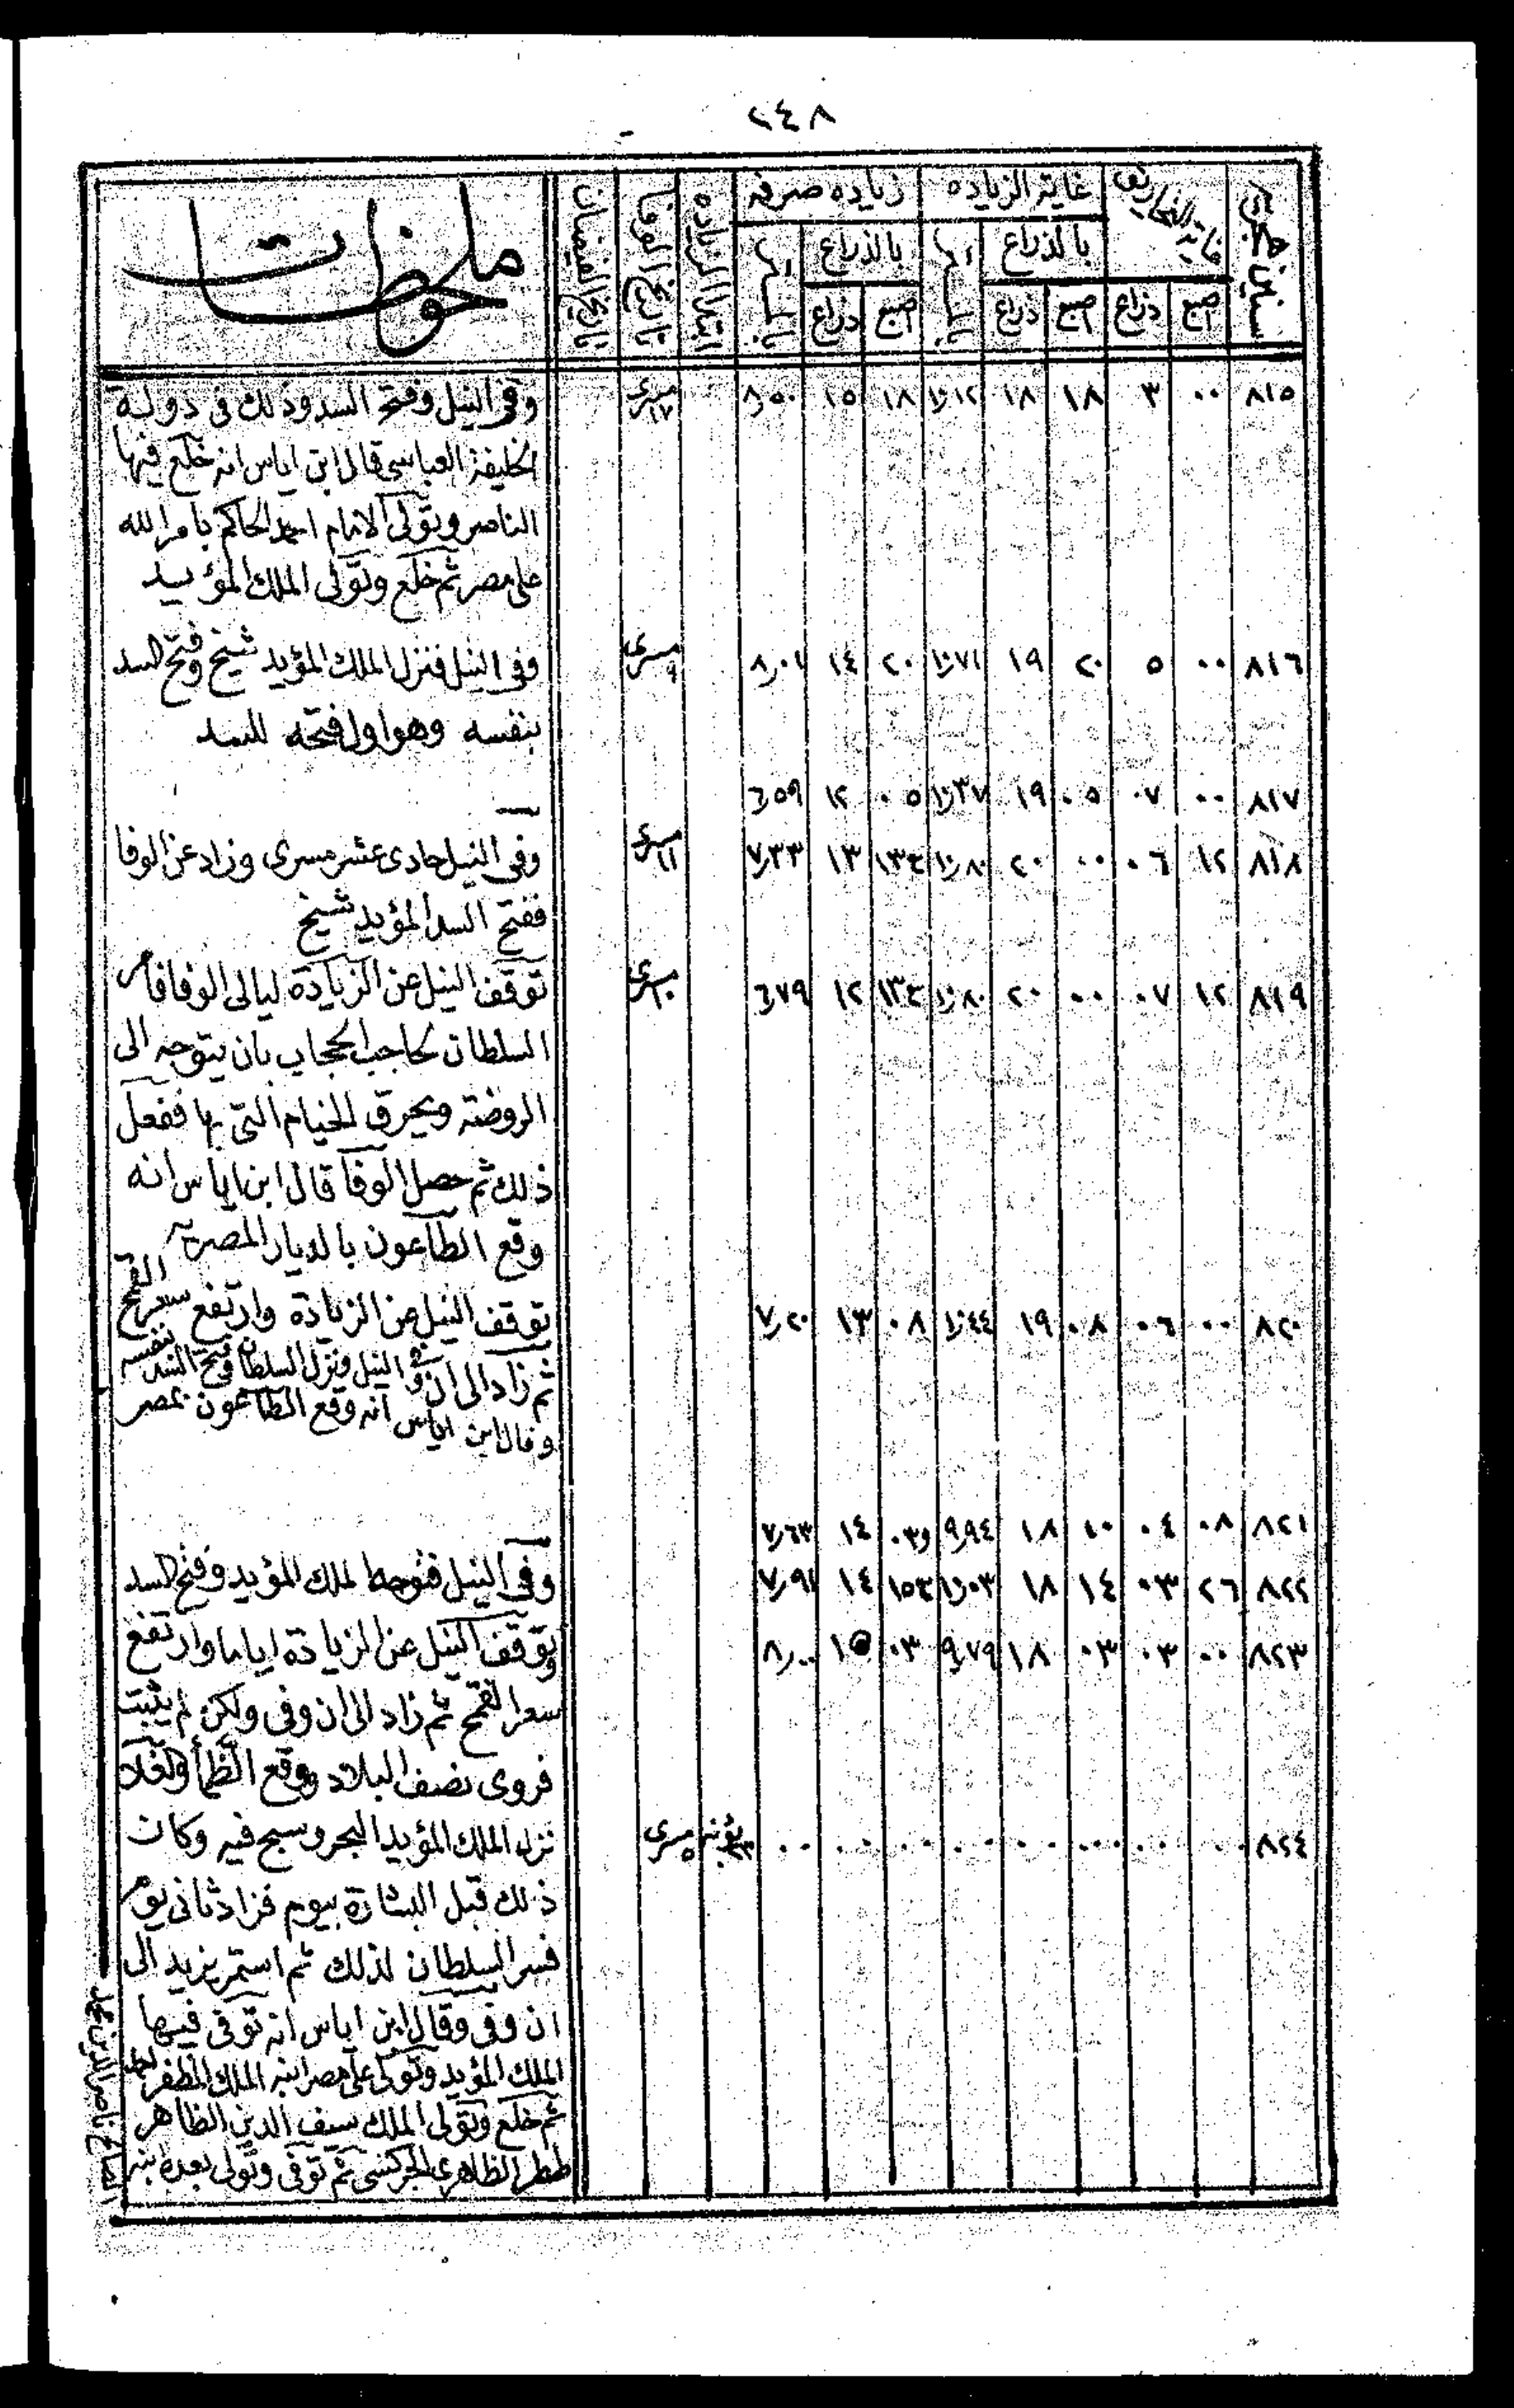 ٢٤٨
سنين هجرية
غاية التحاريق
غاية الزيادة
زيادة صرفه
ابتدا الزيادة
تاريخ الوفا
تاريخ الفيضان
ملحوظات
بالذراع
بالمتر
بالذراع
بالمتر
اصبع ذراع اصبع ذراع اصبع ذراع
٨١٥ ٠٠ ٣ ١٨ ١٨ ١٠,١٢ ١٨ ١٥ ٨,٥٠ مسرى ١٧ وفى النيل وفتح السد وذلك فى دولة
الخليفة العباسى قال ابن اياس انه خلع فيها
الناصر وتولى الامام احمد الحاكم بامر الله
على مصر ثم خلع وتولى الملك المؤيد
٨١٦ ٠٠ ٥ ٢٠ ١٩ ١٠,٧١ ٢٠ ١٤ ٨,٠١ مسرى ٩ وفى النيل فنزل الملك المؤيد شيخ وفتح السد
بنفسه وهو اول فتحه للسد
٨١٧ ٠٠ ٠٧ ٠٥ ١٩ ١٠,٣٧ ٠٥ ١٢ ٦,٥٩
٨١٨ ١٢ ٠٦ ٠٠ ٢٠ ١٠,٨٠ ١٣ ٧,٣٣ مسرى ١١ وفى النيل حادى عشر مسرى وزاد عن الوفا
ففتح السد المؤيد شيخ
٨١٩ ١٢ ٠٧ ٠٠ ٢٠ ١٠,٨٠ ١٢ ٦,٧٩ مسرى ١٠ توقف النيل عن الزيادة ليالى الوفا فامر
السلطان لحاجب الحجاب بان يتوجه الى
الروضة ويحرق الخيام التى بها ففعل
ذلك ثم حصل الوفا قال ابن اياس انه
وقع الطاعون بالديار المصرية
٨٢٠ ٠٠ ٠٦ ٠٨ ١٩ ١٠,٤٤ ٠٨ ١٣ ٧,٢٠ توقف النيل عن الزيادة وارتفع سعر القمح
ثم زاد الى ان وفى النيل ونزل السلطان فتح السد بنفسه
وقال ابن اياس انه وقع الطاعون بمصر
٨٢١ ٠٨ ٠٤ ١٠ ١٨ ٩,٩٤ ١٤ ٧,٦٣
٨٢٢ ٢٦ ٠٣ ١٤ ١٨ ١٠,٠٣ ١٤ ٧,٩١ وفى النيل فتوجه الملك المؤيد وفتح السد
٨٢٣ ٠٠ ٠٣ ٠٣ ١٨ ٩,٧٩ ٠٣ ١٥ ٨,٠٠ وتوقف النيل عن الزيادة اياما وارتفع
سعر القمح ثم زاد الى ان وفى ولكن لم يثبت
فروى نصف البلاد ووقع الظمأ والغلا
٨٢٤ بؤنه مسرى نزل الملك المؤيد البحر وسبح فيه وكان
ذلك قبل البشارة بيوم فزاد ثانى يوم
فسر السلطان لذلك ثم استمر يزيد الى
ان وفى وقال ابن اياس انه توفى فيها
الملك المؤيد وتولى على مصر ابنه الملك المظفر احمد
ثم خلع وتولى الملك سيف الدين الظاهر
ططر الظاهرى الجركسى ثم توفى وتولى بعده ابنه
الصالح ناصر الدين محمد